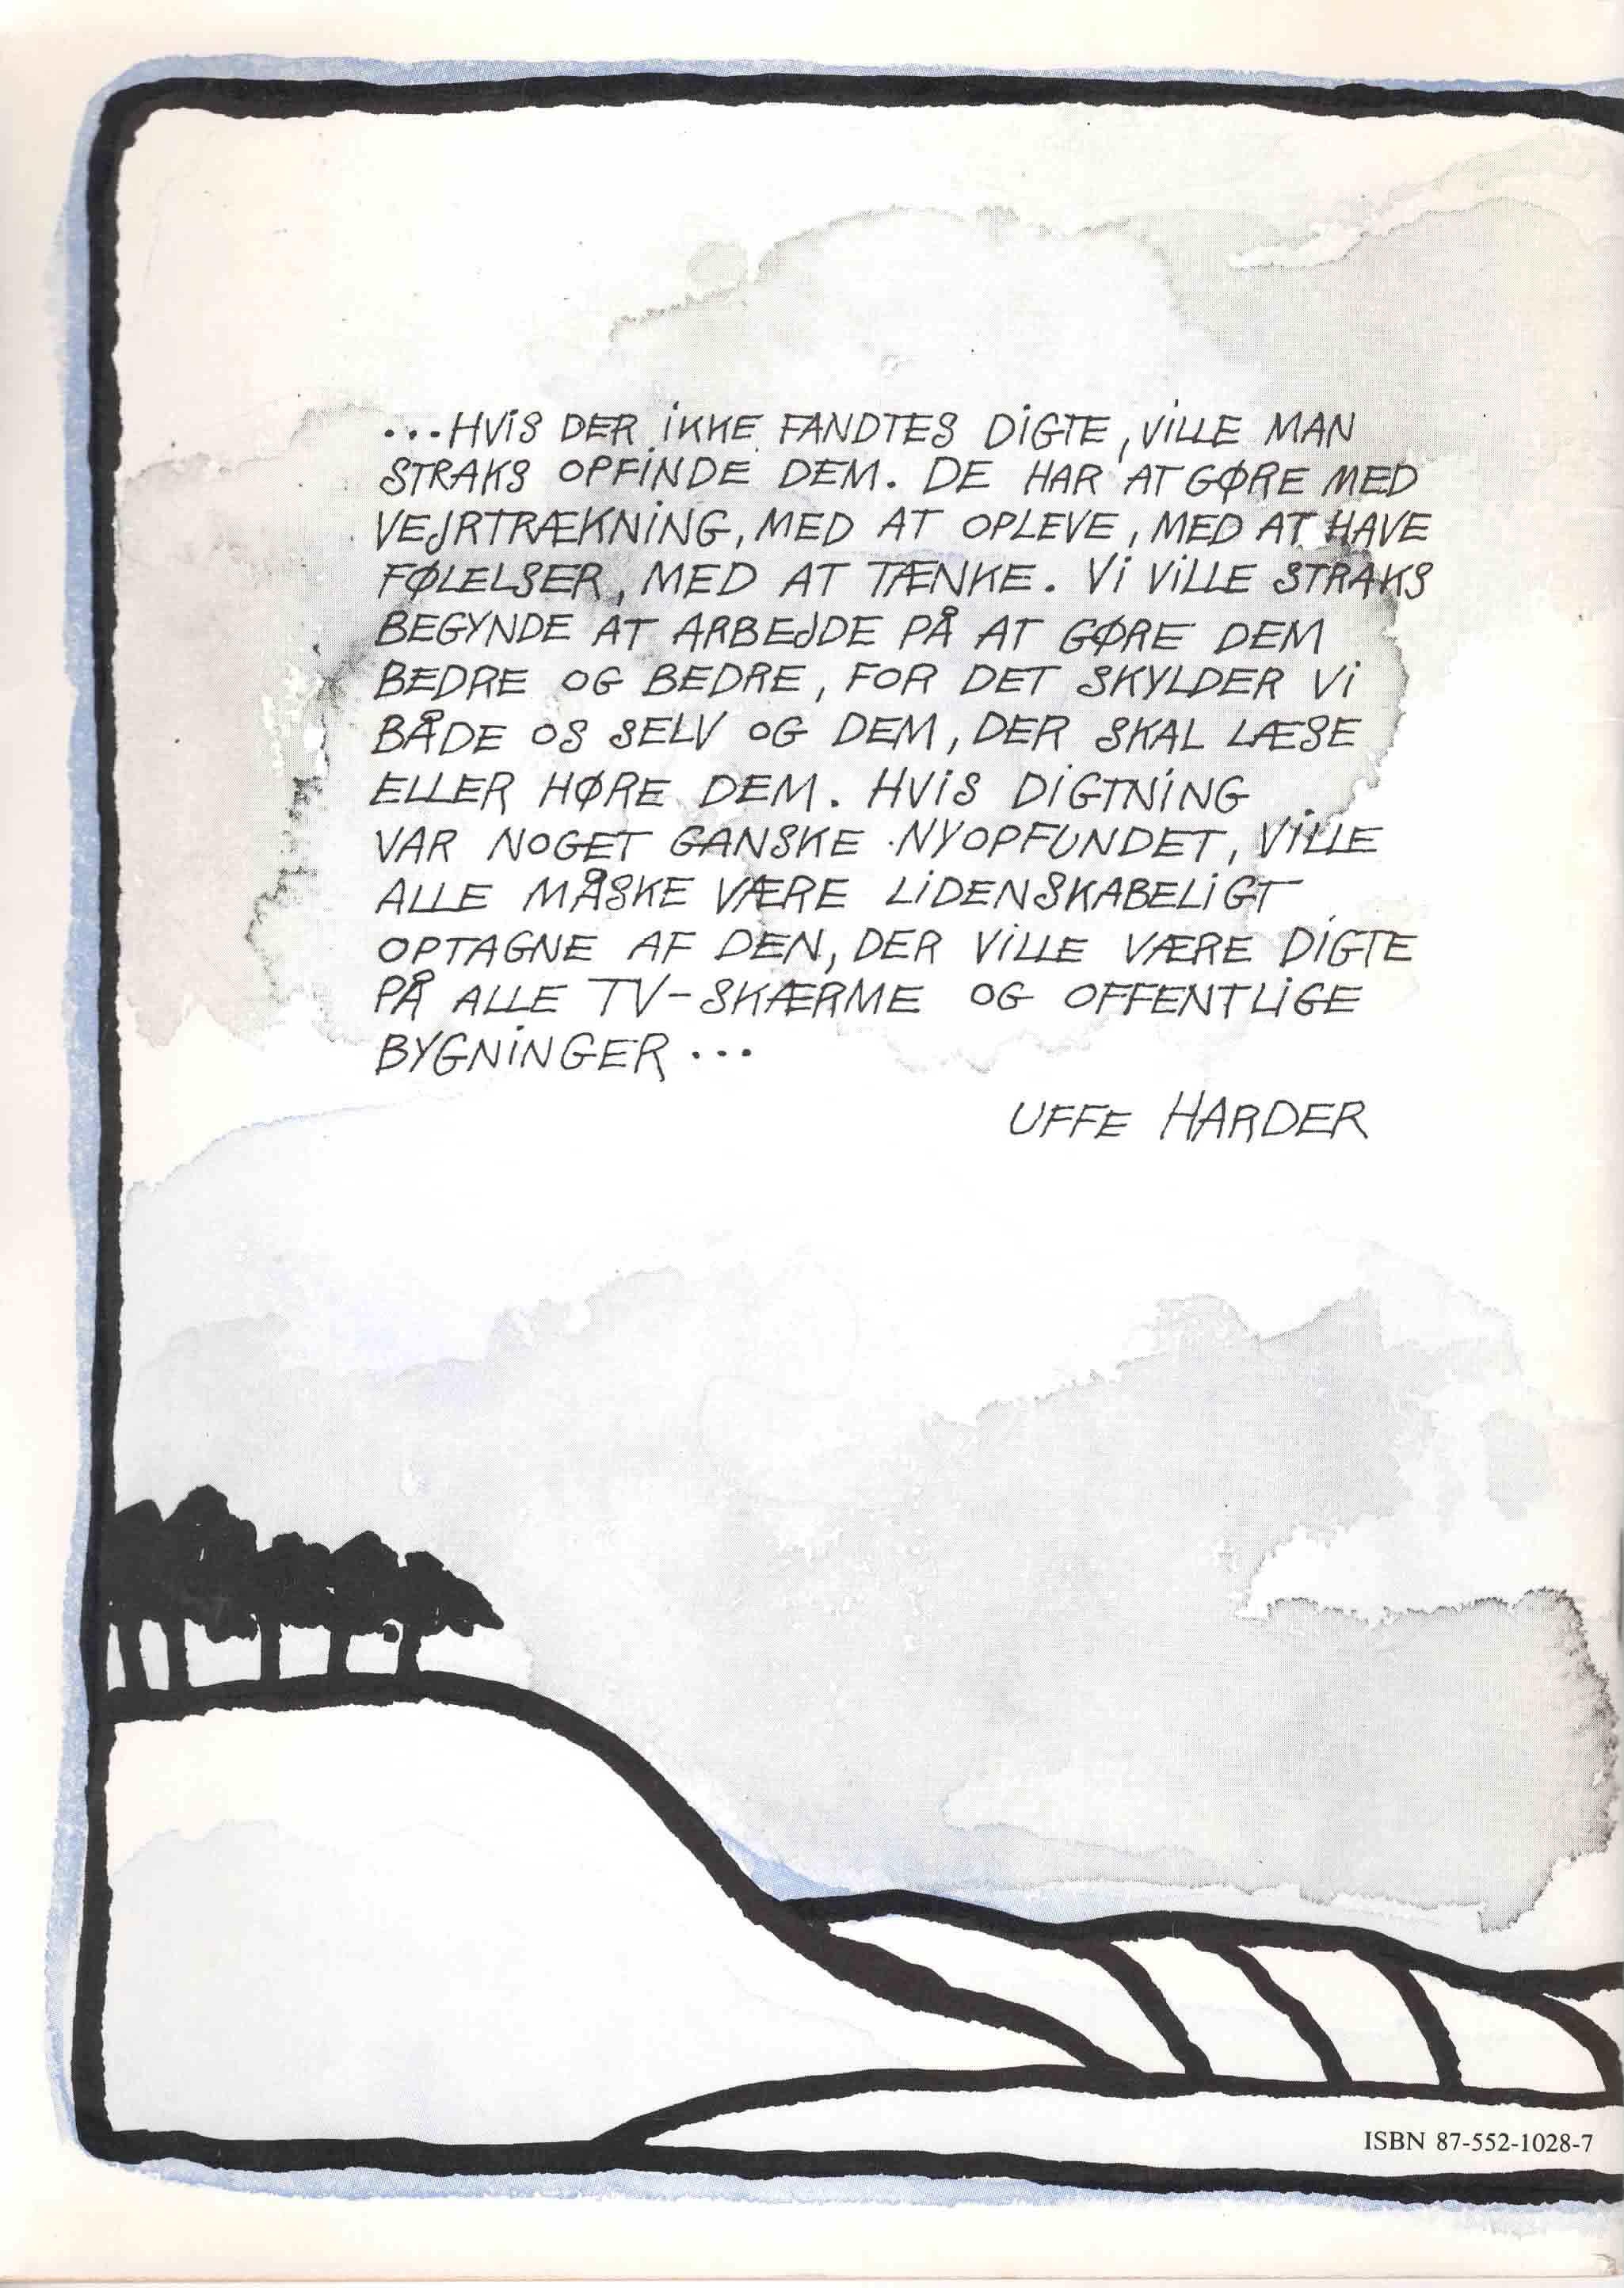 ...HViS DER iKKE FANDTES DiGTE, ViLLE MAN
STRAKS OPFiNDE DEM. DE HAR AT GØRE MED
VEJRTRÆKNiNG, MED AT OPLEVE, MED AT HAVE
FØLELSER, MED AT TÆNKE. Vi ViLLE STRAKS
BEGYNDE AT ARBEJDE PÅ AT GØRE DEM
BEDRE OG BEDRE, FOR DET SKYLDER Vi
BÅDE OS SELV OG DEM, DER SKAL LÆSE
ELLER HØRE DEM. HViS DiGTNiNG
VAR NOGET GANSKE NYOPFUNDET, ViLLE
ALLE MÅSKE VÆRE LiDENSKABELiGT
OPTAGNE AF DEN, DER ViLLE VÆRE DiGTE
PÅ ALLE TV-SKÆRME OG OFFENTLiGE
BYGNiNGER...
UFFE HARDER
ISBN 87-552-1028-7